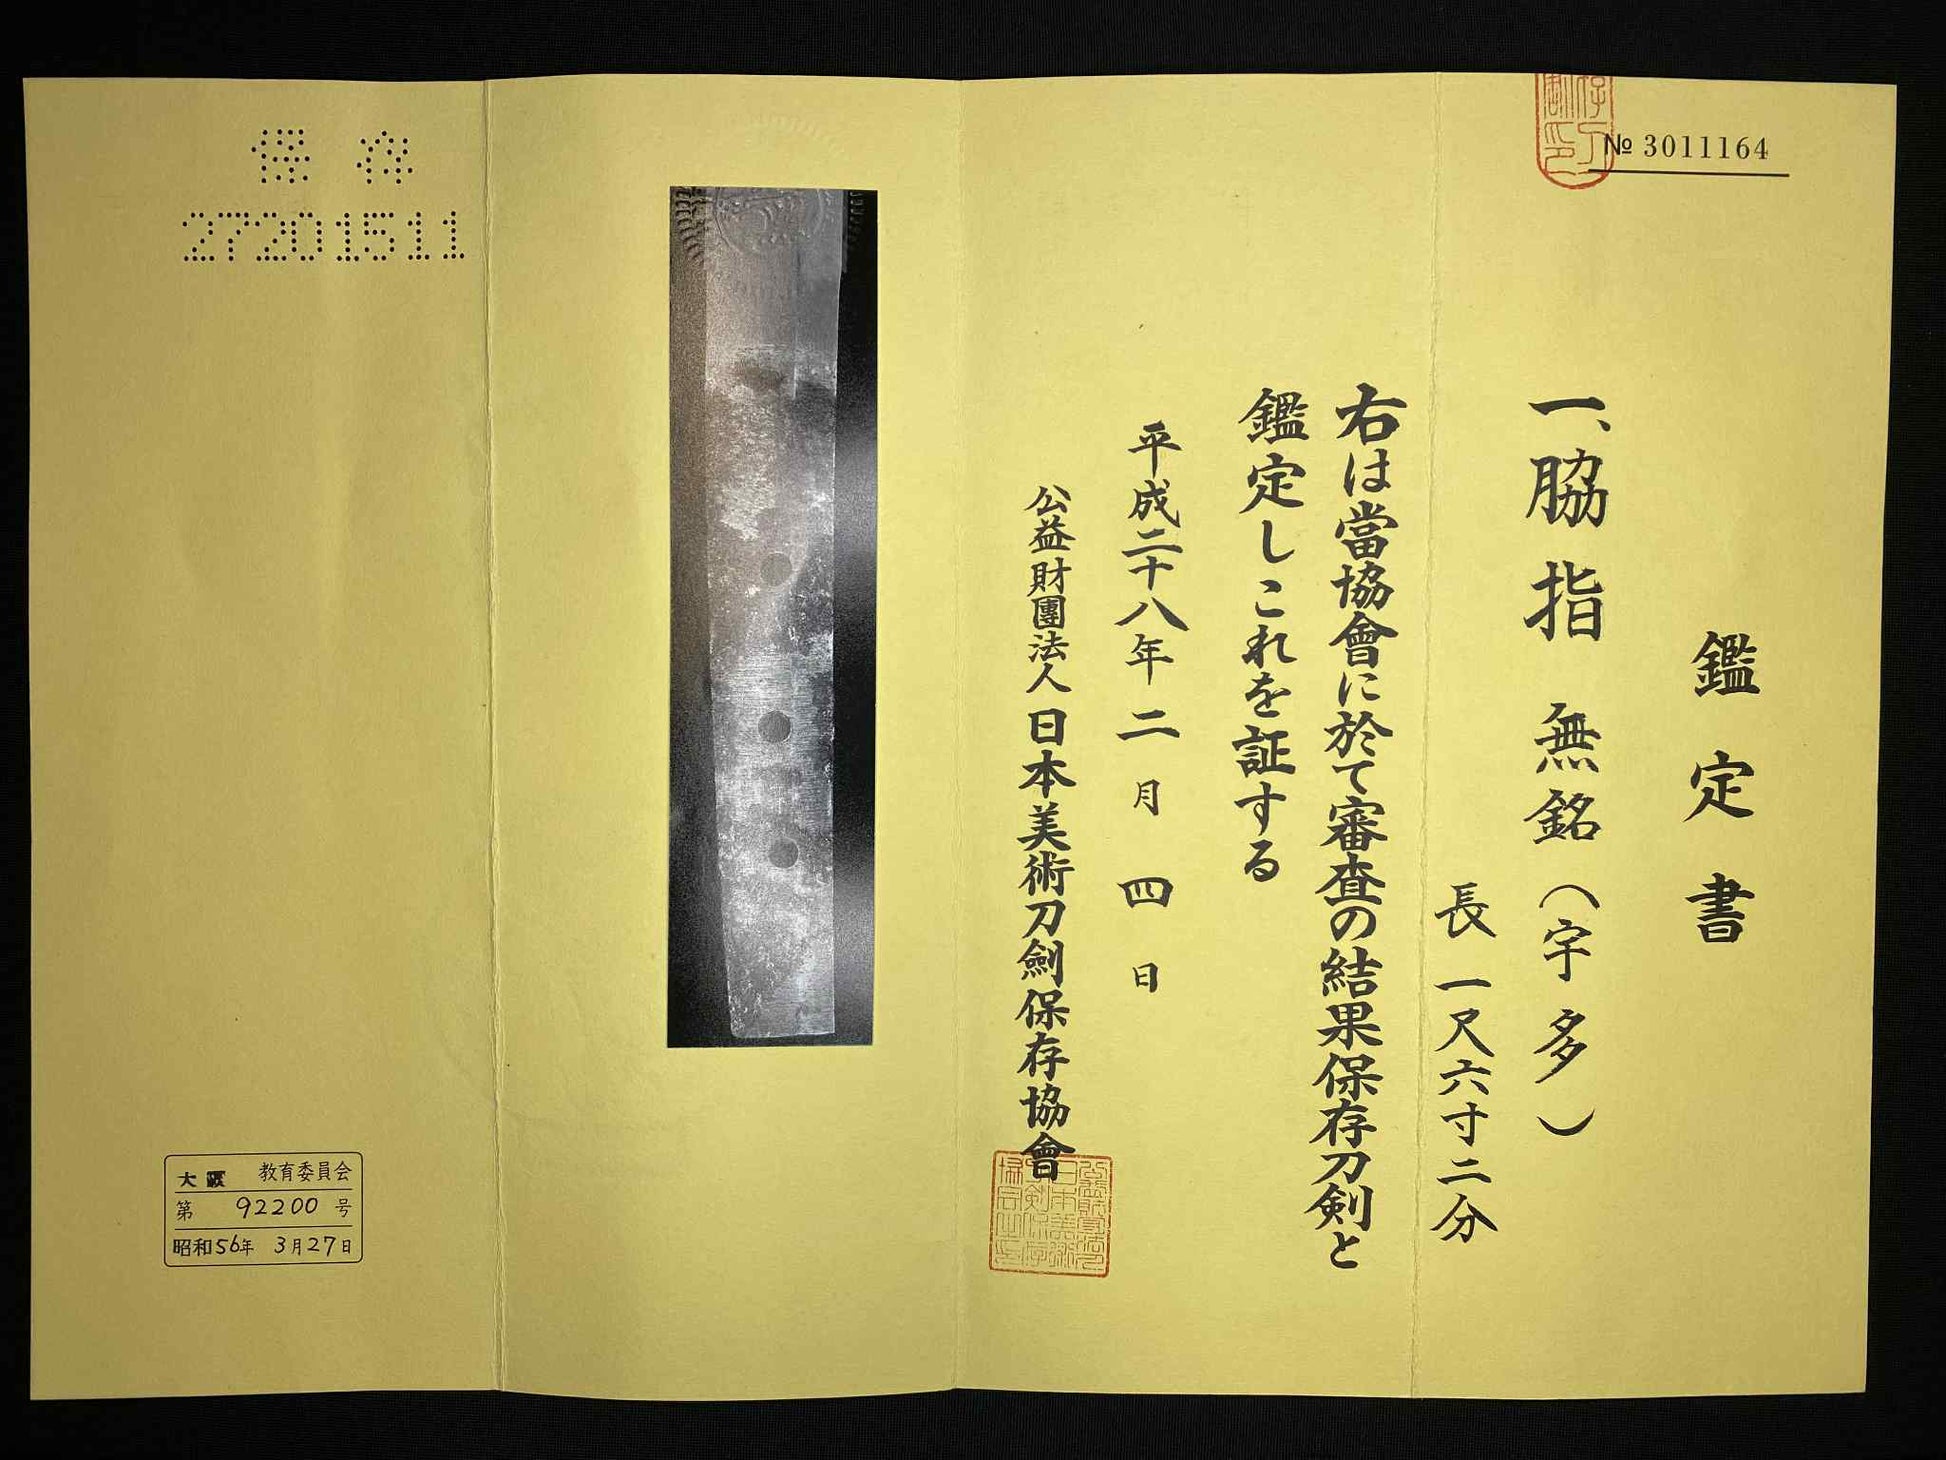 № 3011164
鑑定書
一、脇指 無銘（宇多）
長 一尺六寸二分
右は當協會に於て審査の結果保存刀剣と
鑑定しこれを証する
平成二十八年二月四日
公益財團法人日本美術刀劍保存協會
保存
27201511
大阪 教育委員会
第 92200 号
昭和56年 3月27日